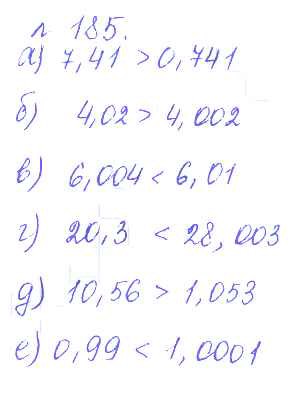 л 185.
а) 7,41 > 0,741
б) 4,02 > 4,002
в) 6,004 < 6,01
г) 20,3 < 28,003
д) 10,56 > 1,053
е) 0,99 < 1,0001